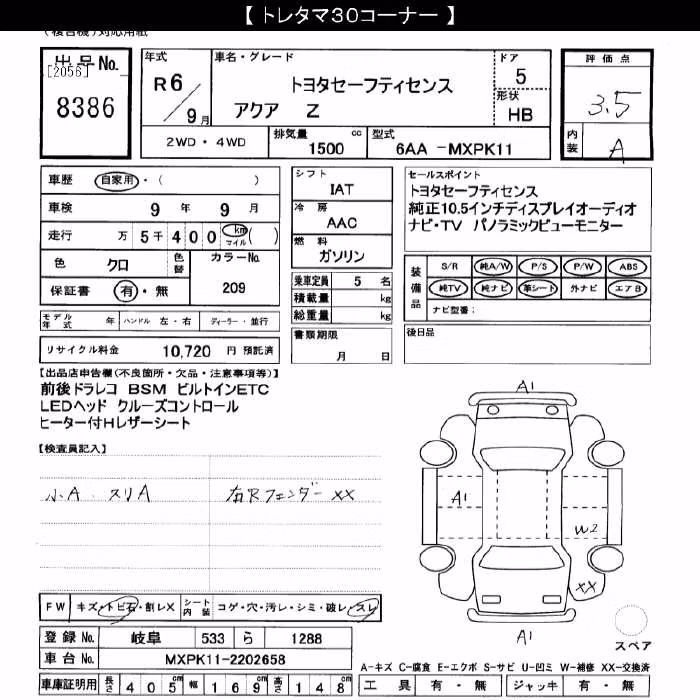 【 トレタマ30コーナー 】
(複合機)対応用紙
出品No.
[2056]
8386
年式
R6/9月
車名・グレード
トヨタセーフティセンス
アクア Z
ドア
5
形状
HB
評価点
3.5
内装
A
2WD・4WD
排気量 1500 cc
型式 6AA -MXPK11
車歴 自家用・( )
車検 9年 9月
走行 万 5千 4 0 0 km マイル ( )
色 クロ
色替
カラーNo. 209
保証書 有・無
シフト
IAT
冷房
AAC
燃料
ガソリン
乗車定員 5 名
積載量 kg
総重量 kg
セールスポイント
トヨタセーフティセンス
純正10.5インチディスプレイオーディオ
ナビ・TV パノラミックビューモニター
装備品
S/R 純A/W P/S P/W ABS
純TV 純ナビ 革シート 外ナビ エアB
ナビ型番:
モデル年式 年 ハンドル 左・右 ディーラー・並行
書類期限
月 日
後日品
リサイクル料金 10,720 円 預託済
【出品店申告欄(不良箇所・欠品・注意事項等)】
前後ドラレコ BSM ビルトインETC
LEDヘッド クルーズコントロール
ヒーター付Hレザーシート
【検査員記入】
小A . スリA 右Rフェンダー XX
A1
A1
W2
XX
A1
スペア
FW キズ・トビ石・割レX
シート内装 コゲ・穴・汚レ・シミ・破レ・スレ
登録No. 岐阜 533 ら 1288
車台No. MXPK11-2202658
A-キズ C-腐食 E-エクボ S-サビ U-凹ミ W-補修 XX-交換済
車庫証明用 長さ 405cm 幅 169cm 高さ 148cm
工具 有・無 ジャッキ 有・無